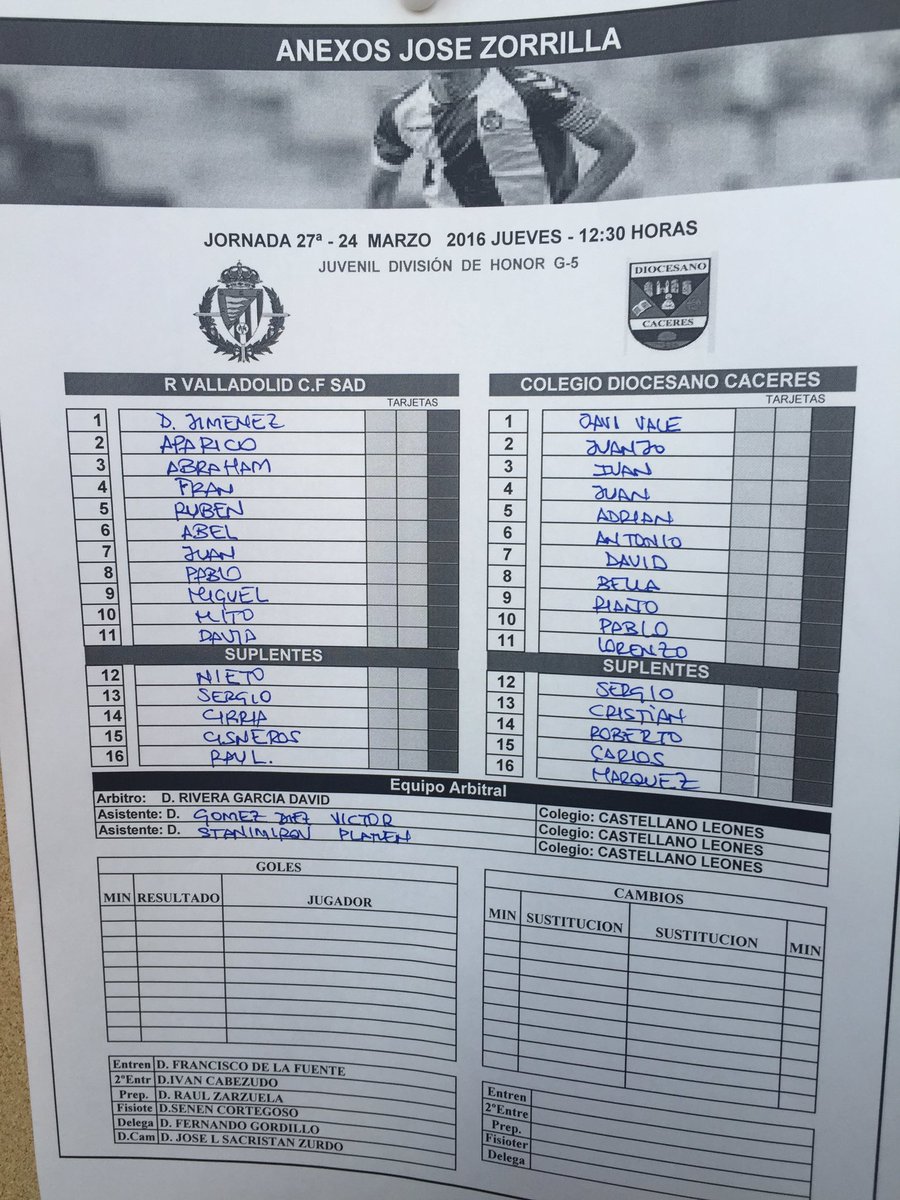 ANEXOS JOSE ZORRILLA
JORNADA 27ª - 24 MARZO 2016 JUEVES - 12:30 HORAS
JUVENIL DIVISIÓN DE HONOR G-5
DIOCESANO
CACERES
R VALLADOLID C.F SAD
TARJETAS
1 D. JIMENEZ
2 APARICO
3 ABRAHAM
4 FRAN
5 RUBEN
6 ABEL
7 JUAN
8 PABLO
9 MIGUEL
10 MITO
11 DAVID
SUPLENTES
12 NIETO
13 SERGIO
14 CIRRIA
15 CISNEROS
16 RAUL.
COLEGIO DIOCESANO CACERES
TARJETAS
1 JAVI VALE
2 JUANJO
3 IVAN
4 JUAN
5 ADRIAN
6 ANTONIO
7 DAVID
8 BELLA
9 RIAÑO
10 PABLO
11 LORENZO
SUPLENTES
12 SERGIO
13 CRISTIAN
14 ROBERTO
15 CARLOS
16 MARQUEZ
Equipo Arbitral
Arbitro: D. RIVERA GARCIA DAVID Colegio: CASTELLANO LEONES
Asistente: D. GOMEZ DIEZ VICTOR Colegio: CASTELLANO LEONES
Asistente: D. STANIMIROV PLAMEN Colegio: CASTELLANO LEONES
GOLES
MIN RESULTADO JUGADOR
CAMBIOS
MIN SUSTITUCION SUSTITUCION MIN
Entren D. FRANCISCO DE LA FUENTE
2ºEntr D.IVAN CABEZUDO
Prep. D. RAUL ZARZUELA
Fisiote D.SENEN CORTEGOSO
Delega D. FERNANDO GORDILLO
D.Cam D. JOSE L SACRISTAN ZURDO
Entren
2ºEntre
Prep.
Fisioter
Delega